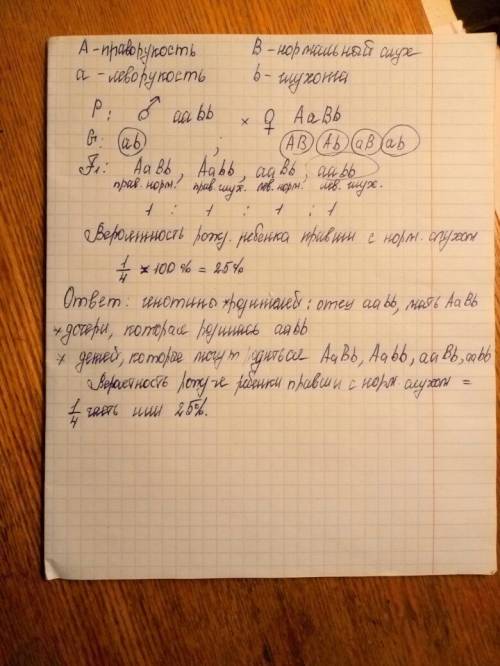 A - праворукость B - нормальный слух
a - леворукость b - глухота
P: ♂ aabb × ♀ AaBb
G: ab ; AB Ab aB ab
F₁: AaBb, Aabb, aaBb, aabb
прав. норм. прав. глух. лев. норм. лев. глух.
1 : 1 : 1 : 1
Вероятность рожд. ребенка правши с норм. слухом
1/4 × 100% = 25%
Ответ: генотипы родителей: отец aabb, мать AaBb
* дочери, которая родилась aabb
* детей, которые могут родиться AaBb, Aabb, aaBb, aabb
Вероятность ребенка правши с норм. слухом =
1/4 часть или 25%.